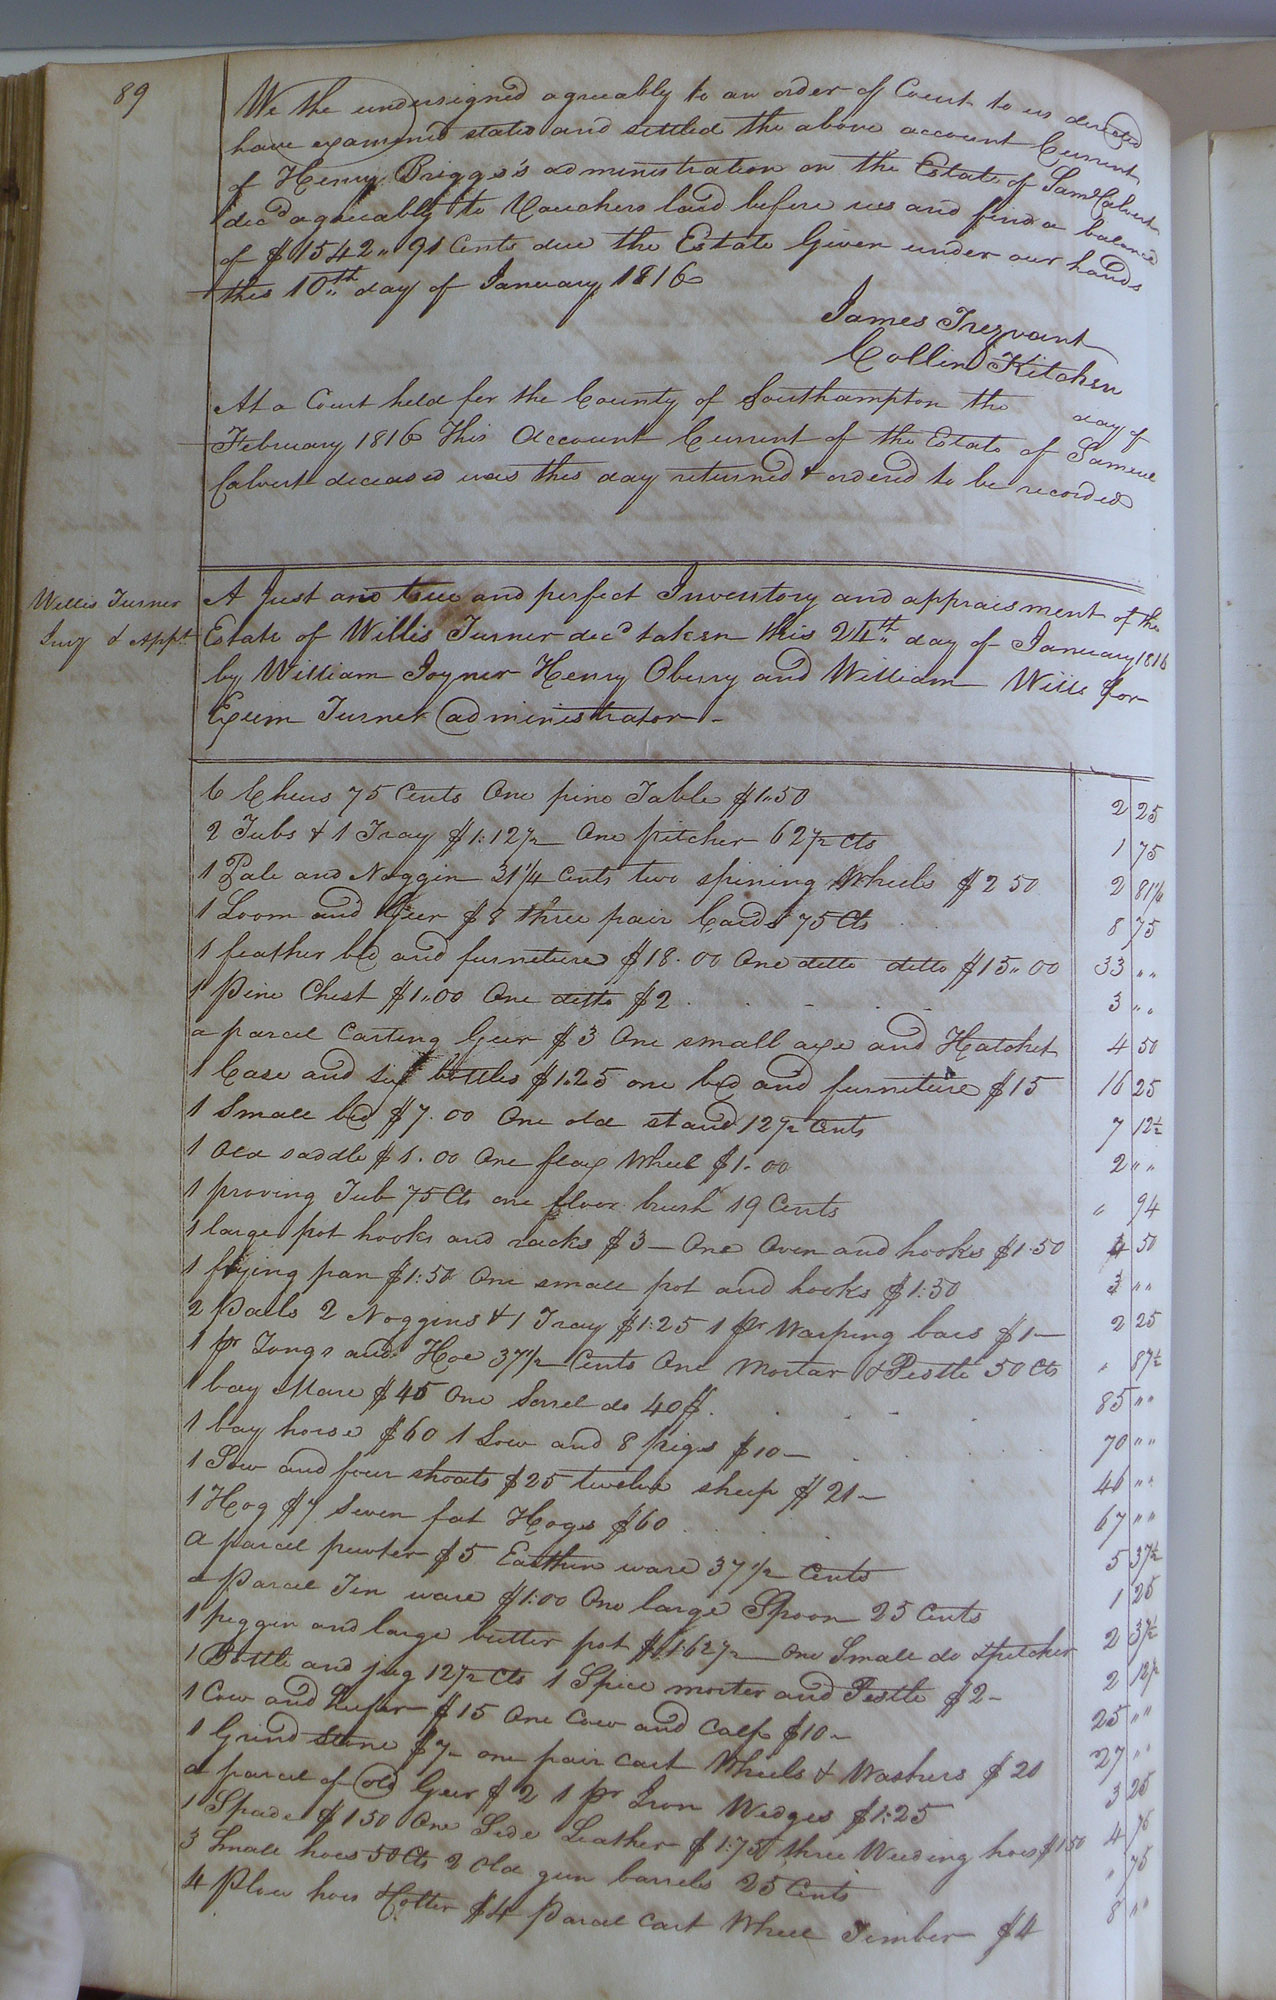 89
We the undersigned agreeably to an order of Court to us directed
have examined stated and settled the above account Current
of Henry Briggs's administration on the Estate of Saml Calvert
decd agreeably to Vouchers laid before us and find a balance
of $1542 " 91 Cents due the Estate Given under our hands
this 10th day of January 1816
James Trezvant
Collin Kitchen
At a Court held for the County of Southampton the day of
February 1816 This Account Current of the Estate of Samuel
Calvert deceased was this day returned & ordered to be recorded
Willis Turner
Invy & Appt
A Just and true and perfect Inventory and appraisment of the
Estate of Willis Turner decd taken this 24th day of January 1816
by William Joyner Henry Oberry and William Wills for
Exum Turner administrator -
6 Chears 75 Cents One pine Table $1.50 2 25
2 Tubs & 1 Tray $1:12 1/2 One pitcher 62 1/2 Cts 1 75
1 Pale and Noggin 31 1/4 Cents two spining Wheels $2 50 2 81 1/4
1 Loom and Geer $8 three pair Cards 75 Cts 8 75
1 feather bed and furneture $18.00 One ditto ditto $15"00 33 " "
1 Pine Chest $1"00 One ditto $2 3 " "
a parcel Carting Geer $3 One small axe and Hatchet 4 50
1 Case and six bottles $1.25 one bed and furneture $15 16 25
1 Small bed $7.00 One old stand 12 1/2 Cents 7 12 1/2
1 Old saddle $1.00 One flax Wheel $1.00 2 " "
1 proving Tub 75 Cts one floor brush 19 Cents " 94
1 large pot hooks and racks $3 - One Oven and hooks $1.50 4 50
1 frying pan $1:50 One small pot and hooks $1:50 3 " "
2 Pails 2 Noggins & 1 Tray $1:25 1 pr Warping bars $1 - 2 25
1 pr Tongs and Hoe 37 1/2 Cents One Mortar & Pestle 50 Cts " 87 1/2
1 bay Mare $45 One Sorrel do 40$ 85 " "
1 bay horse $60 1 Sow and 8 pigs $10 - 70 " "
1 Sow and four shoats $25 twelve sheep $21 - 46 " "
1 Hog $7 Seven fat Hogs $60 67 " "
a parcel pewter $5 Earthen ware 37 1/2 Cents 5 37 1/2
a Parcel Tin ware $1:00 One large Spoon 25 Cents 1 25
1 peggin and large butter pot $1:62 1/2 One Small do & pitcher 2 37 1/2
1 Bottle and jug 12 1/2 Cts 1 Spice morter and Pestle $2 - 2 12 1/2
1 Cow and heifer $15 One Cow and Calf $10 - 25 " "
1 Grind stone $7 - one pair Cart Wheels & Washers $20 27 " "
a parcel of old Geer $2 1 pr Iron Wedges $1:25 3 25
1 Spade $1 50 One Side Leather $1:75 three Weeding hoes $1 50 4 75
3 Small hoes 50 Cts 2 Old gun barrels 25 Cents " 75
4 Plow hoes Colter $4 Parcel Cart Wheel Timber $4 8 " "